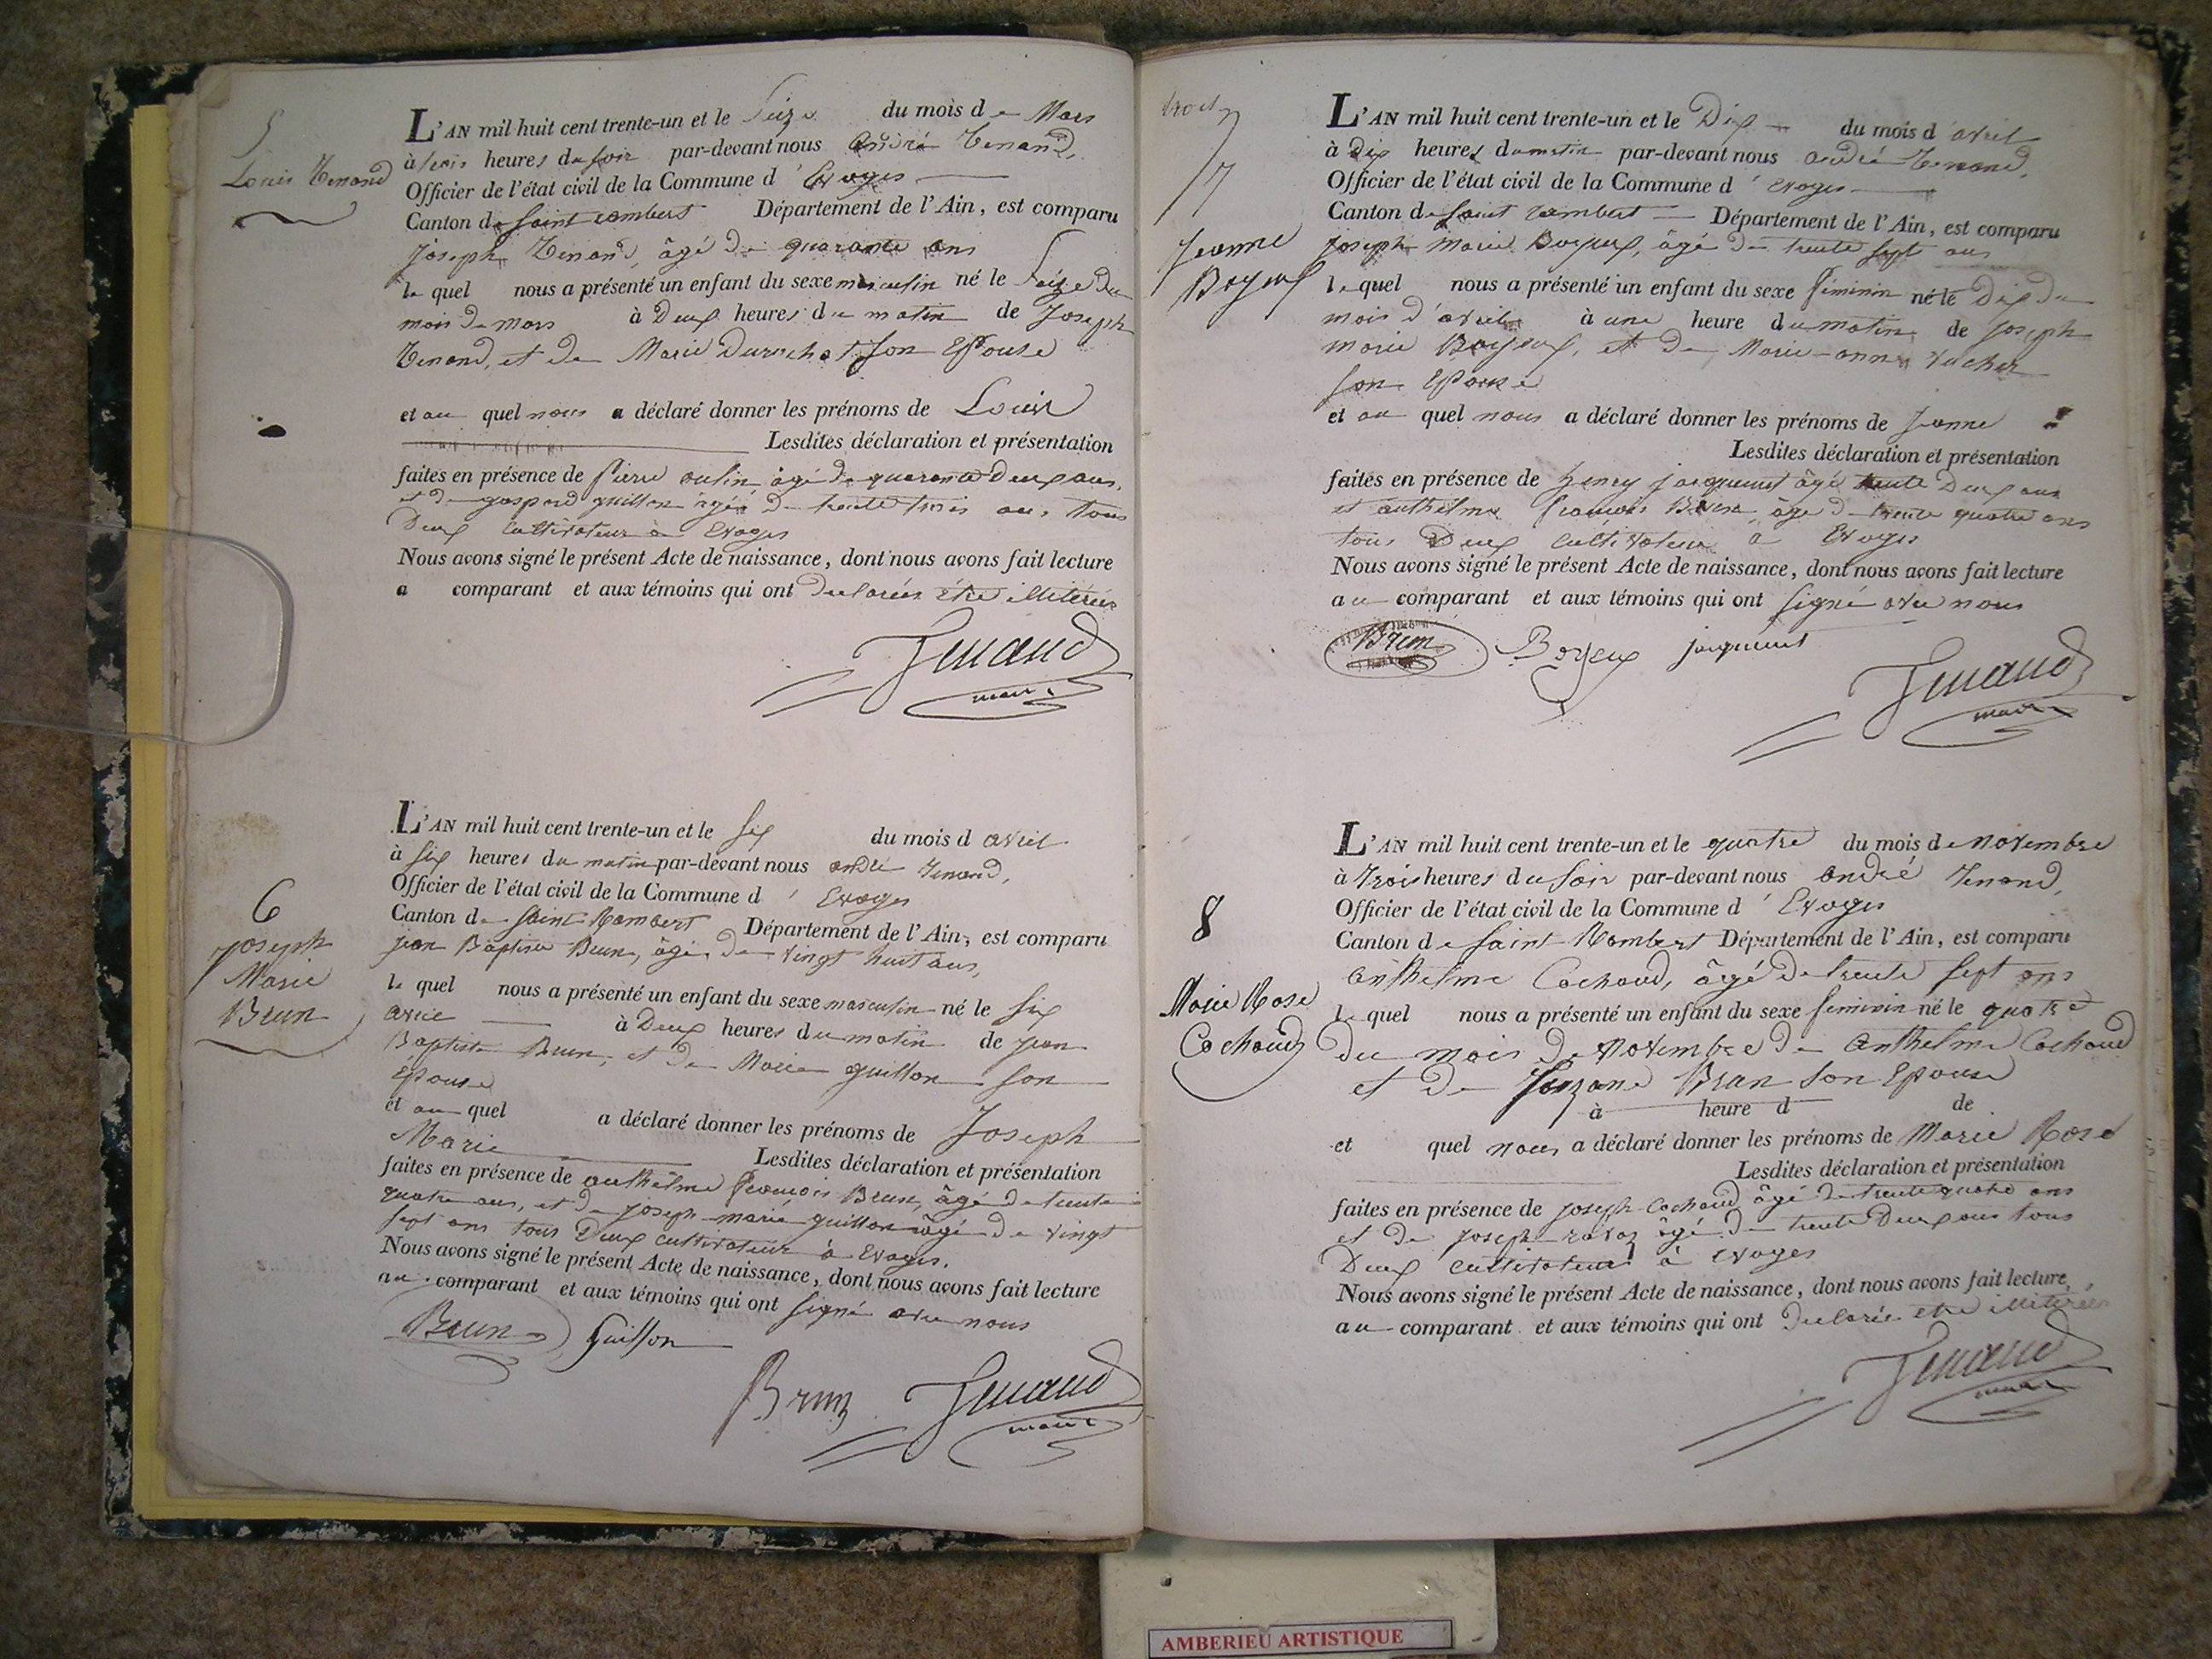 5
Louis Tenand
L'AN mil huit cent trente-un et le Seize du mois de Mars
à trois heures du soir par-devant nous André Tenand,
Officier de l'état civil de la Commune d' Evoges
Canton de Saint rambert Département de l'Ain, est comparu
Joseph Tenand, âgé de quarante ans
le quel nous a présenté un enfant du sexe masculin né le Seize du
mois de mars à Deux heures du matin de Joseph
Tenand, et de Marie Durochat son Epouse
et au quel nous a déclaré donner les prénoms de Louis
Lesdites déclaration et présentation
faites en présence de Pierre oulin âgé de quarante Deux ans,
et de gaspard guillon âgé de trente trois ans, tous
Deux Cultivateur à Evoges
Nous avons signé le présent Acte de naissance, dont nous avons fait lecture
a comparant et aux témoins qui ont declarées être illitérés
Tenand
maire
6
joseph
Marie
Brun
L'AN mil huit cent trente-un et le Six du mois d avril
à Six heures du matin par-devant nous andré Tenand,
Officier de l'état civil de la Commune d' Evoges
Canton de Saint Rambert Département de l'Ain, est comparu
jean Baptiste Brun, âgé de vingt huit ans,
le quel nous a présenté un enfant du sexe masculin né le Six
avril à Deux heures du matin de jean
Baptiste Brun, et de Marie guillon son
Epouse
et au quel a déclaré donner les prénoms de Joseph
Marie Lesdites déclaration et présentation
faites en présence de anthelme François Brun, âgé de trente
quatre ans, et de joseph marie guillon âgé de vingt
sept ans tous Deux cultivateur à Evoges.
Nous avons signé le présent Acte de naissance, dont nous avons fait lecture
au comparant et aux témoins qui ont signé avec nous
Brun Guillon
Brun Tenand
maire
7
Jeanne
Boyeux
L'AN mil huit cent trente-un et le Dix du mois d'avril
à dix heures du matin par-devant nous andré Tenand,
Officier de l'état civil de la Commune d' Evoges
Canton de Saint rambert Département de l'Ain, est comparu
joseph Marie Boyeux, âgé de trente sept ans
le quel nous a présenté un enfant du sexe Féminin né le Dix du
mois d'avril à une heure du matin de joseph
marie Boyeux, et de Marie-anne vucher
son Epouse
et au quel nous a déclaré donner les prénoms de Jeanne
Lesdites déclaration et présentation
faites en présence de henry jacquemet âgé trente Deux ans
et anthelme François Brun, âgé de trente quatre ans
tous Deux Cultivateur à Evoges
Nous avons signé le présent Acte de naissance, dont nous avons fait lecture
au comparant et aux témoins qui ont signé avec nous
Brun Boyeux jacquemet
Tenand
maire
8
Marie Rose
Cochaud
L'AN mil huit cent trente-un et le quatre du mois de Novembre
à trois heures du soir par-devant nous André Tenand,
Officier de l'état civil de la Commune d' Evoges
Canton de Saint-Rambert Département de l'Ain, est comparu
anthelme Cochaud, âgé de trente sept ans
le quel nous a présenté un enfant du sexe feminin né le quatre
du mois de Novembre de Anthelme Cochaud
et de Suzane Brun son Epouse
à heure d de
et quel nous a déclaré donner les prénoms de Marie Rose
Lesdites déclaration et présentation
faites en présence de joseph Cochaud âgé de trente quatre ans
et de joseph ravaz âgé de trente Deux ans tous
Deux cultivateur à Evoges
Nous avons signé le présent Acte de naissance, dont nous avons fait lecture
au comparant et aux témoins qui ont declarée etre illitérées
Tenand
maire
AMBERIEU ARTISTIQUE